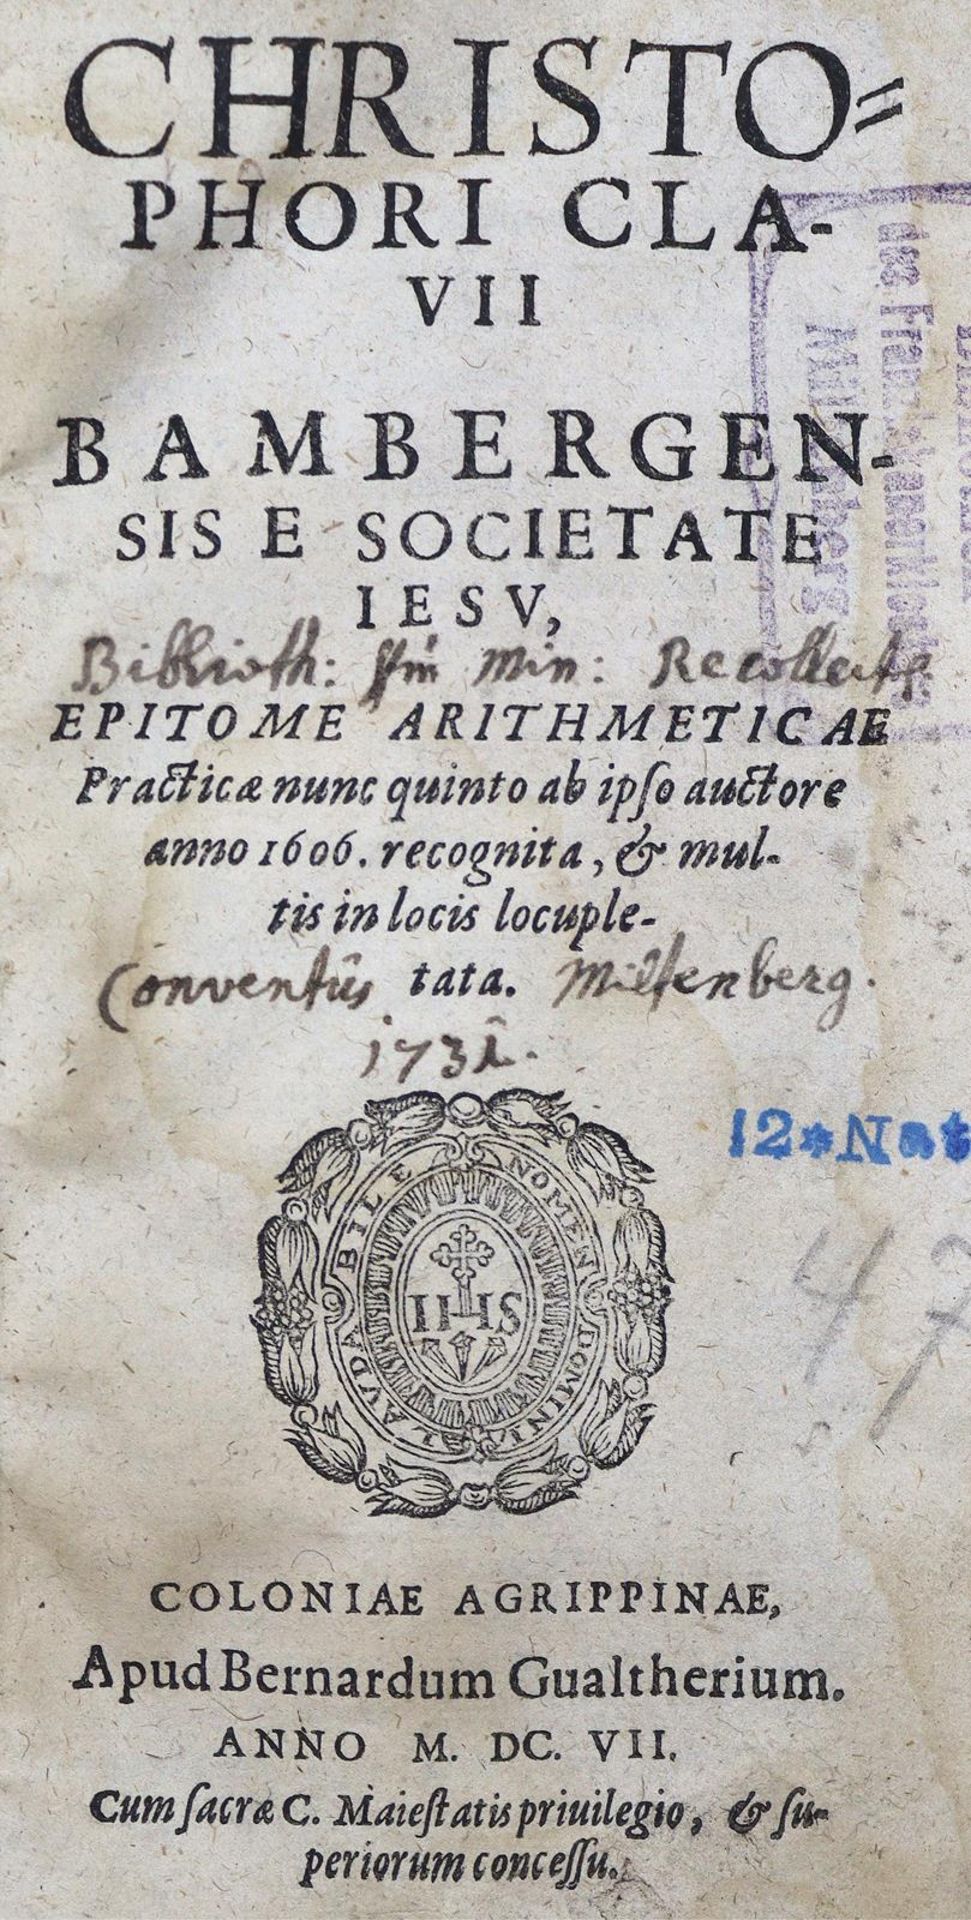 CHRISTO=
PHORI CLA-
VII
BAMBERGEN-
SIS E SOCIETATE
IESV,
Biblioth: Min: Recollect.
EPITOME ARITHMETICAE
Practicæ nunc quinto ab ipso auctore
anno 1606. recognita, & mul-
tis in locis locuple-
tata.
Conventûs Miltenberg.
1731.
LAVDABILE NOMEN DOMINI
IHS
12*Nat
47
COLONIAE AGRIPPINAE,
Apud Bernardum Gualtherium.
ANNO M. DC. VII.
Cum sacræ C. Maiestatis priuilegio, & su-
periorum concessu.
des Franziskanerklosters
Miltenberg